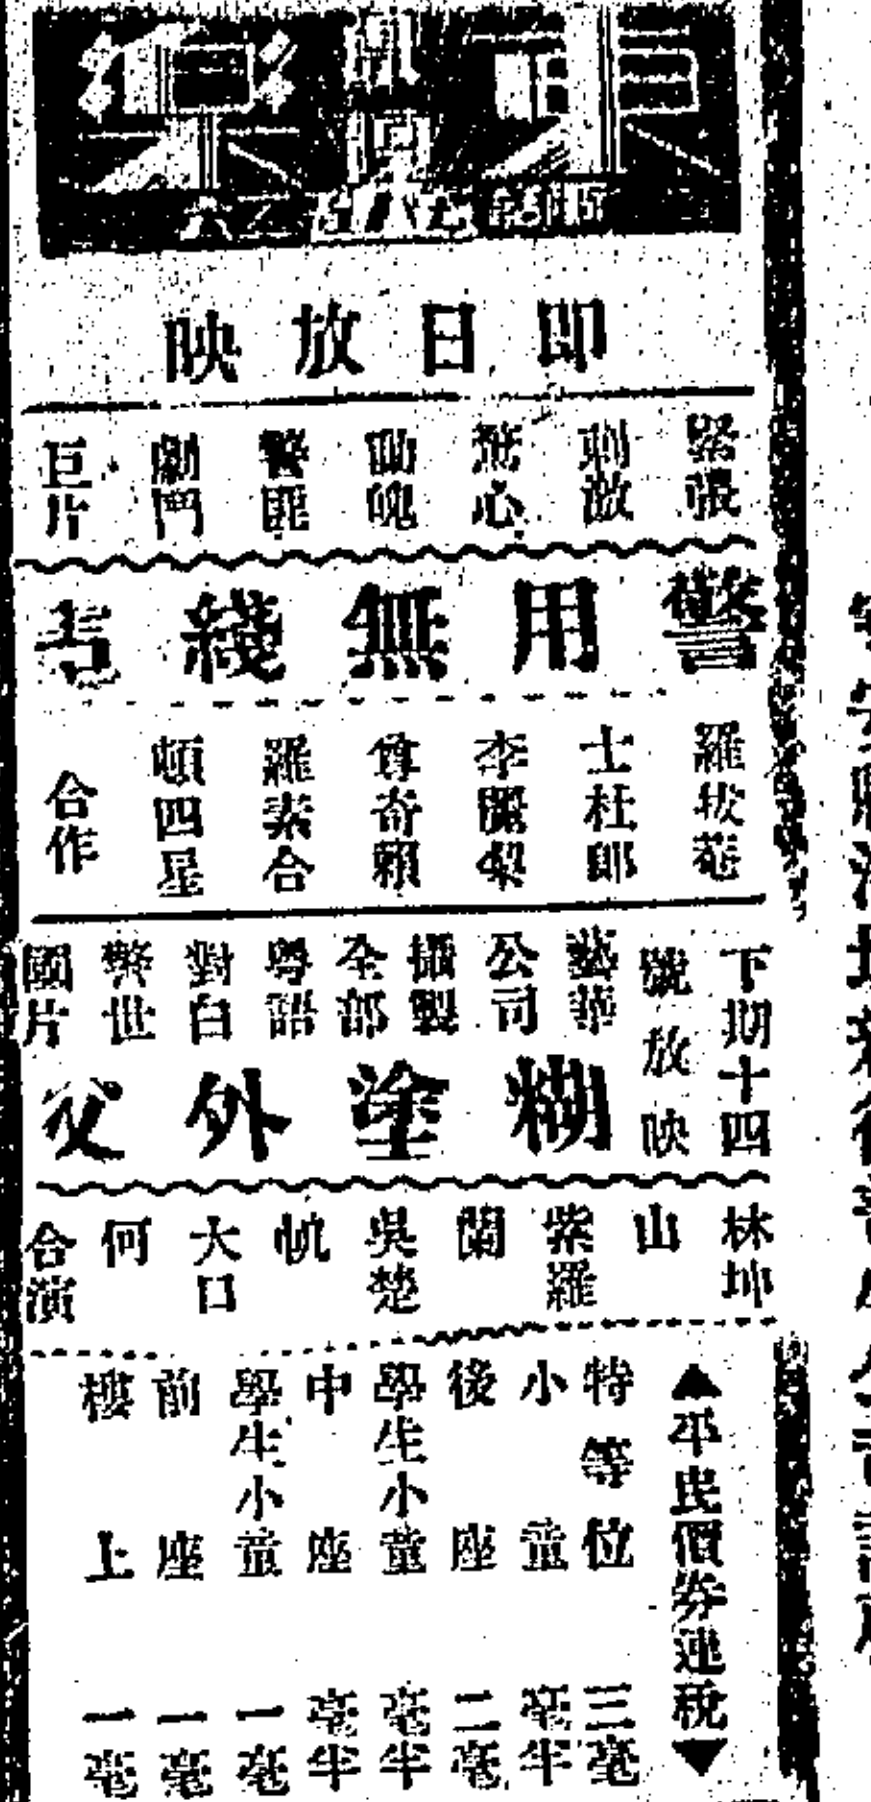 東樂
即日放映
緊張
刺激
驚心
動魄
警匪
劇鬥
巨片
警用無綫電
羅拔菴
士杜郎
李麗梨
尊奇賴
羅素合
頓四星
合作
下期十四
號放映
藝華
公司
攝製
全部
粵語
對白
警世
國片
糊塗外父
林坤
山
紫羅
蘭
吳楚
帆
大口
何
合演
▲平民價券連稅▼
特等位 三毫
小童 毫半
後座 二毫
學生小童 毫半
中座 毫半
學生小童 一毫
前座 一毫
樓上 一毫